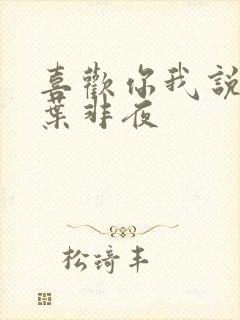 喜歡你我說
葉非夜
松琦丰